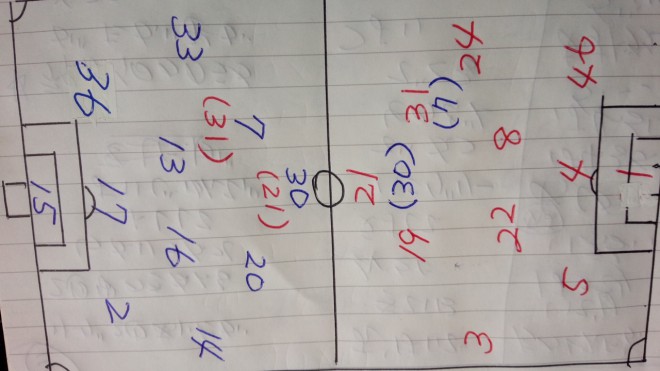 1
44 4 5
8 22
24 3
31 (30) 19
21
30
(21)
7 20
(31)
33 13 16 14
36 17 2
15